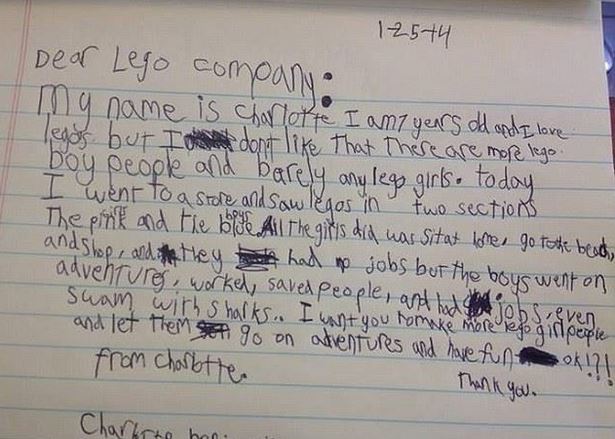 1-25-14
Dear Lego company:
My name is Charlotte I am 7 years old and I love
legos but I don't like that there are more lego
boy people and barely any lego girls. today
I went to a store and saw legos in two sections
girls boys
The pink and the blue. All the girls did was sit at home, go to the beach,
and shop, and they had no jobs but the boys went on
adventures, worked, saved people, and had jobs, even
swam with sharks.. I want you to make more lego girl people
and let them go on adventures and have fun ok!?!
from Charlotte.
Thank you.